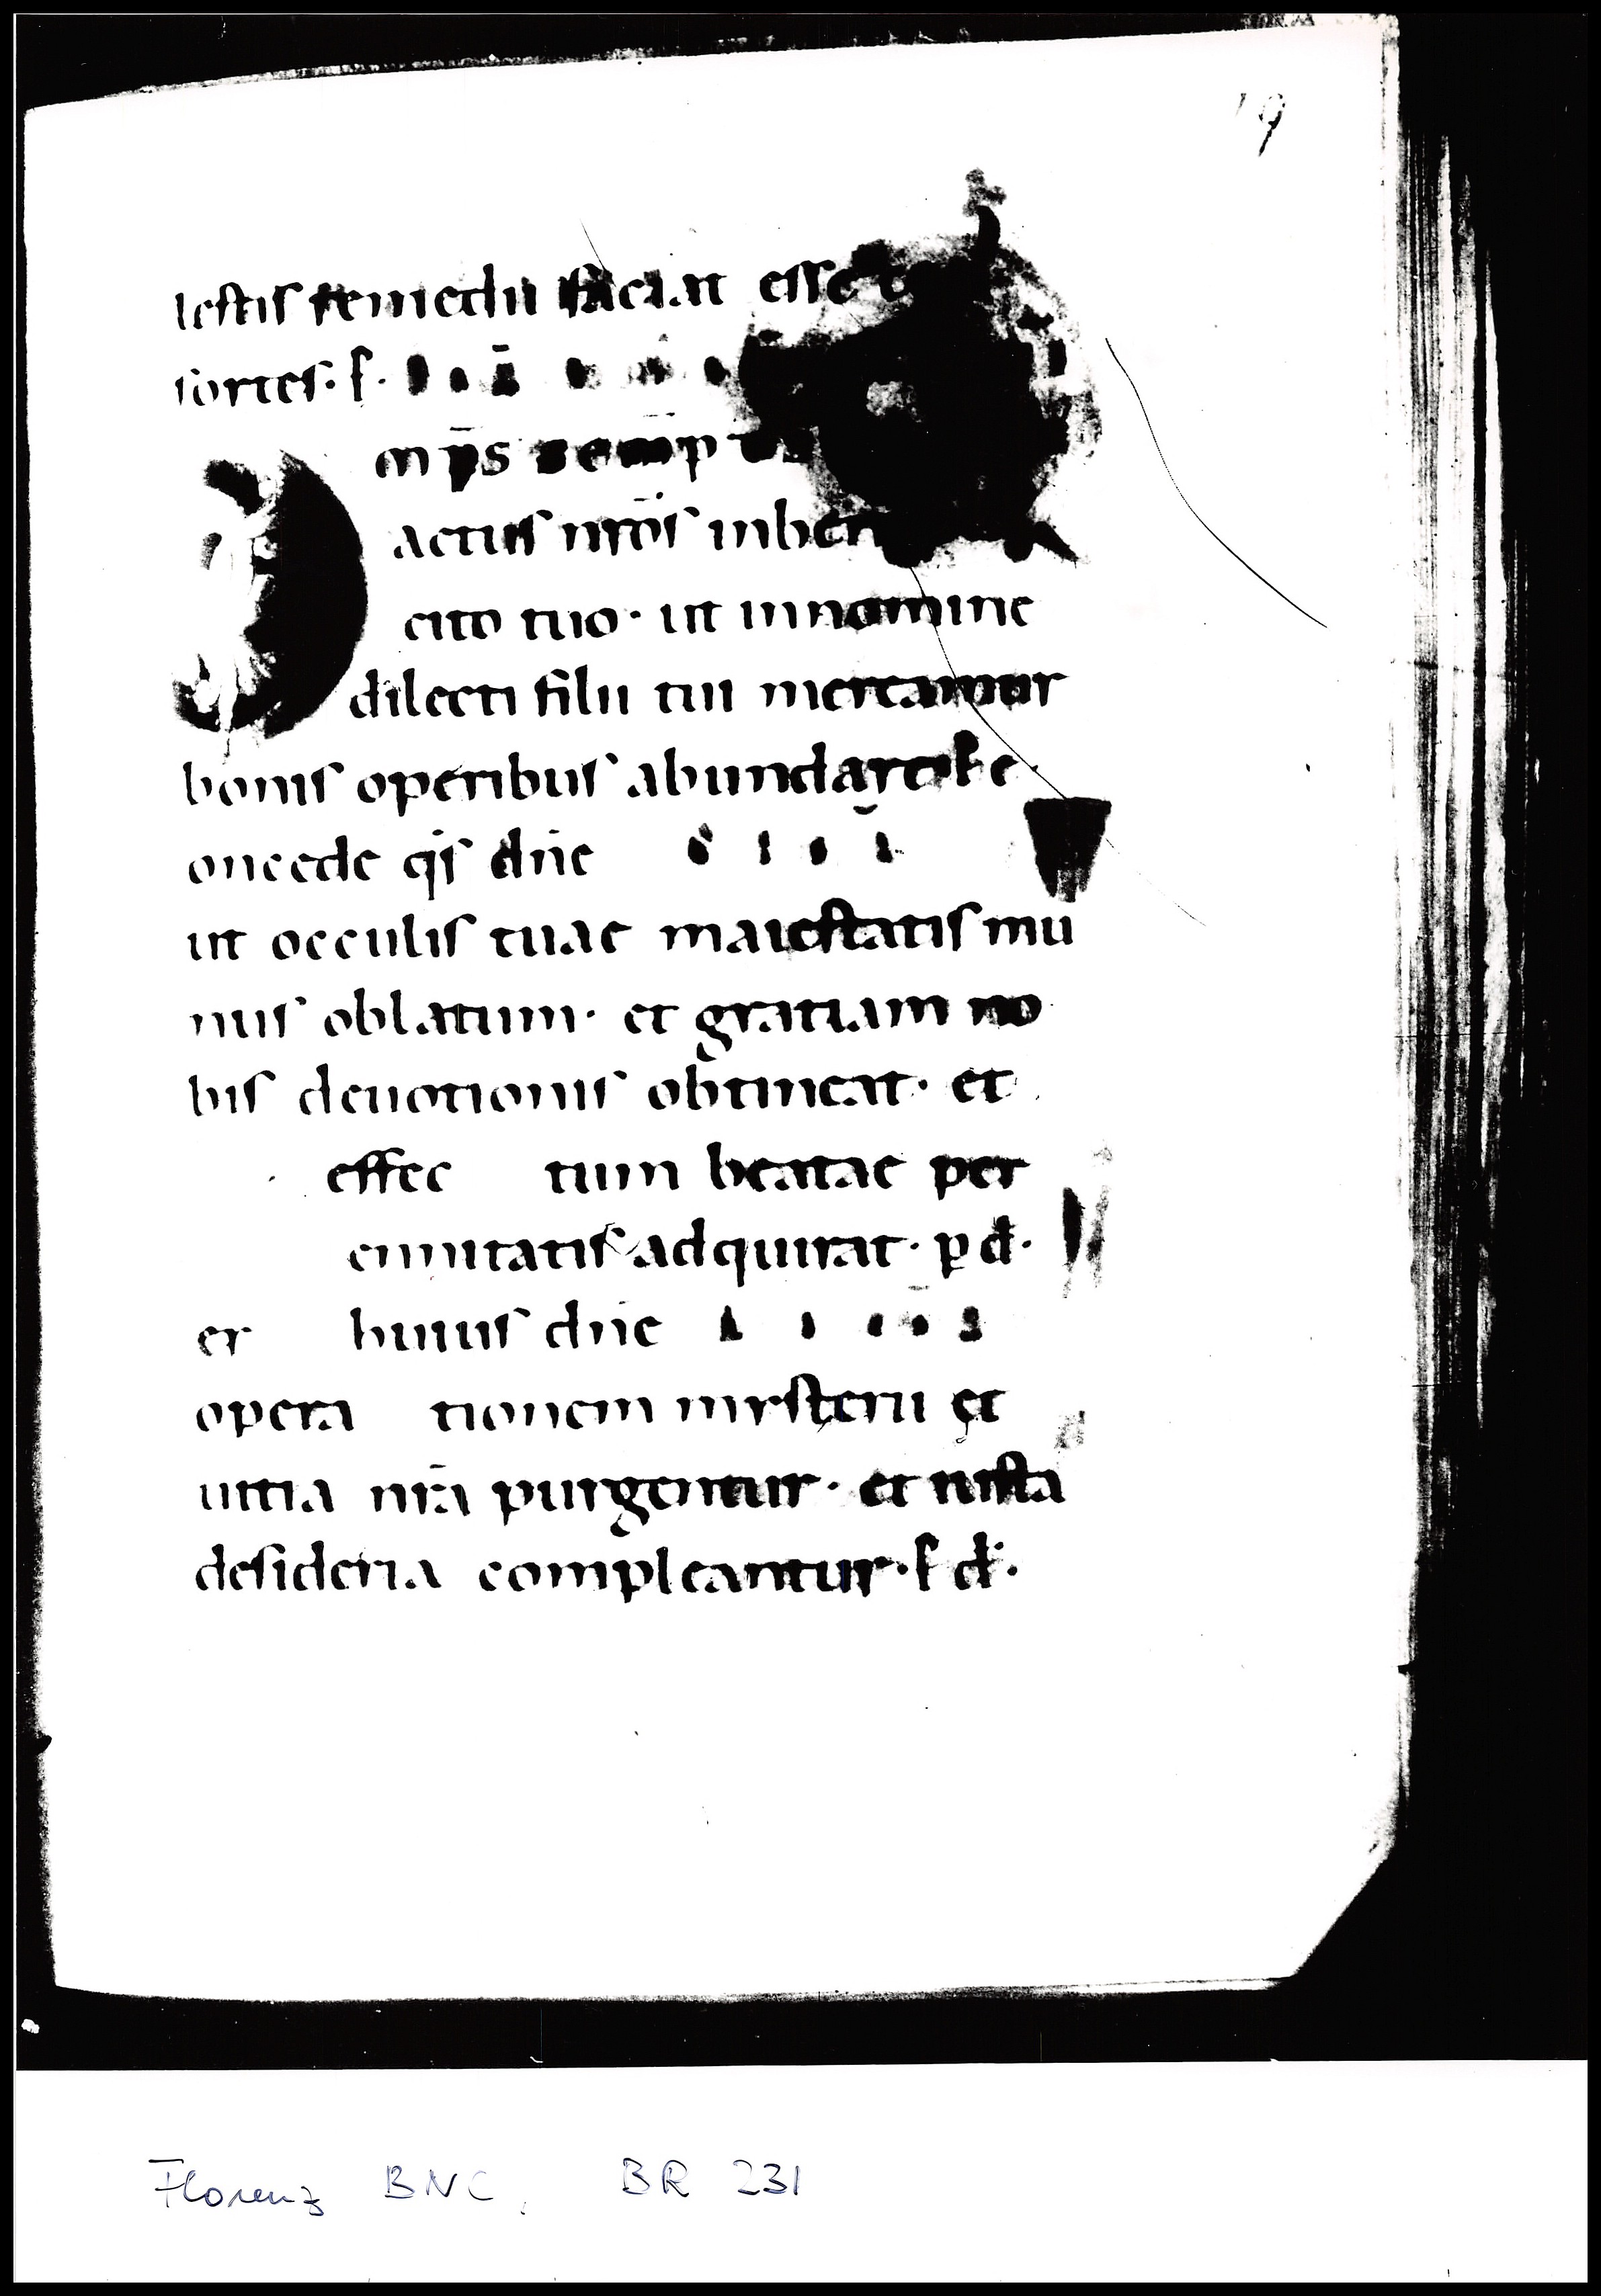 19
lestis remedii faciat esse
sortes· s·
mps semp
actus nros in ben
cito tuo· ut in nomine
dilecti filii tui mereamur
bonis operibus abundare
oncede qs dne
ut occulis tuae maiestatis mu
nus oblatum· et gratiam no
bis deuotionis obtineat· et
effec tum beatae per
ennitatis adquirat· p d·
er huius dne
opera tionem mysterii et
uitia nra purgentur· et iusta
desideria compleantur· s d·
Florenz BNC, BR 231